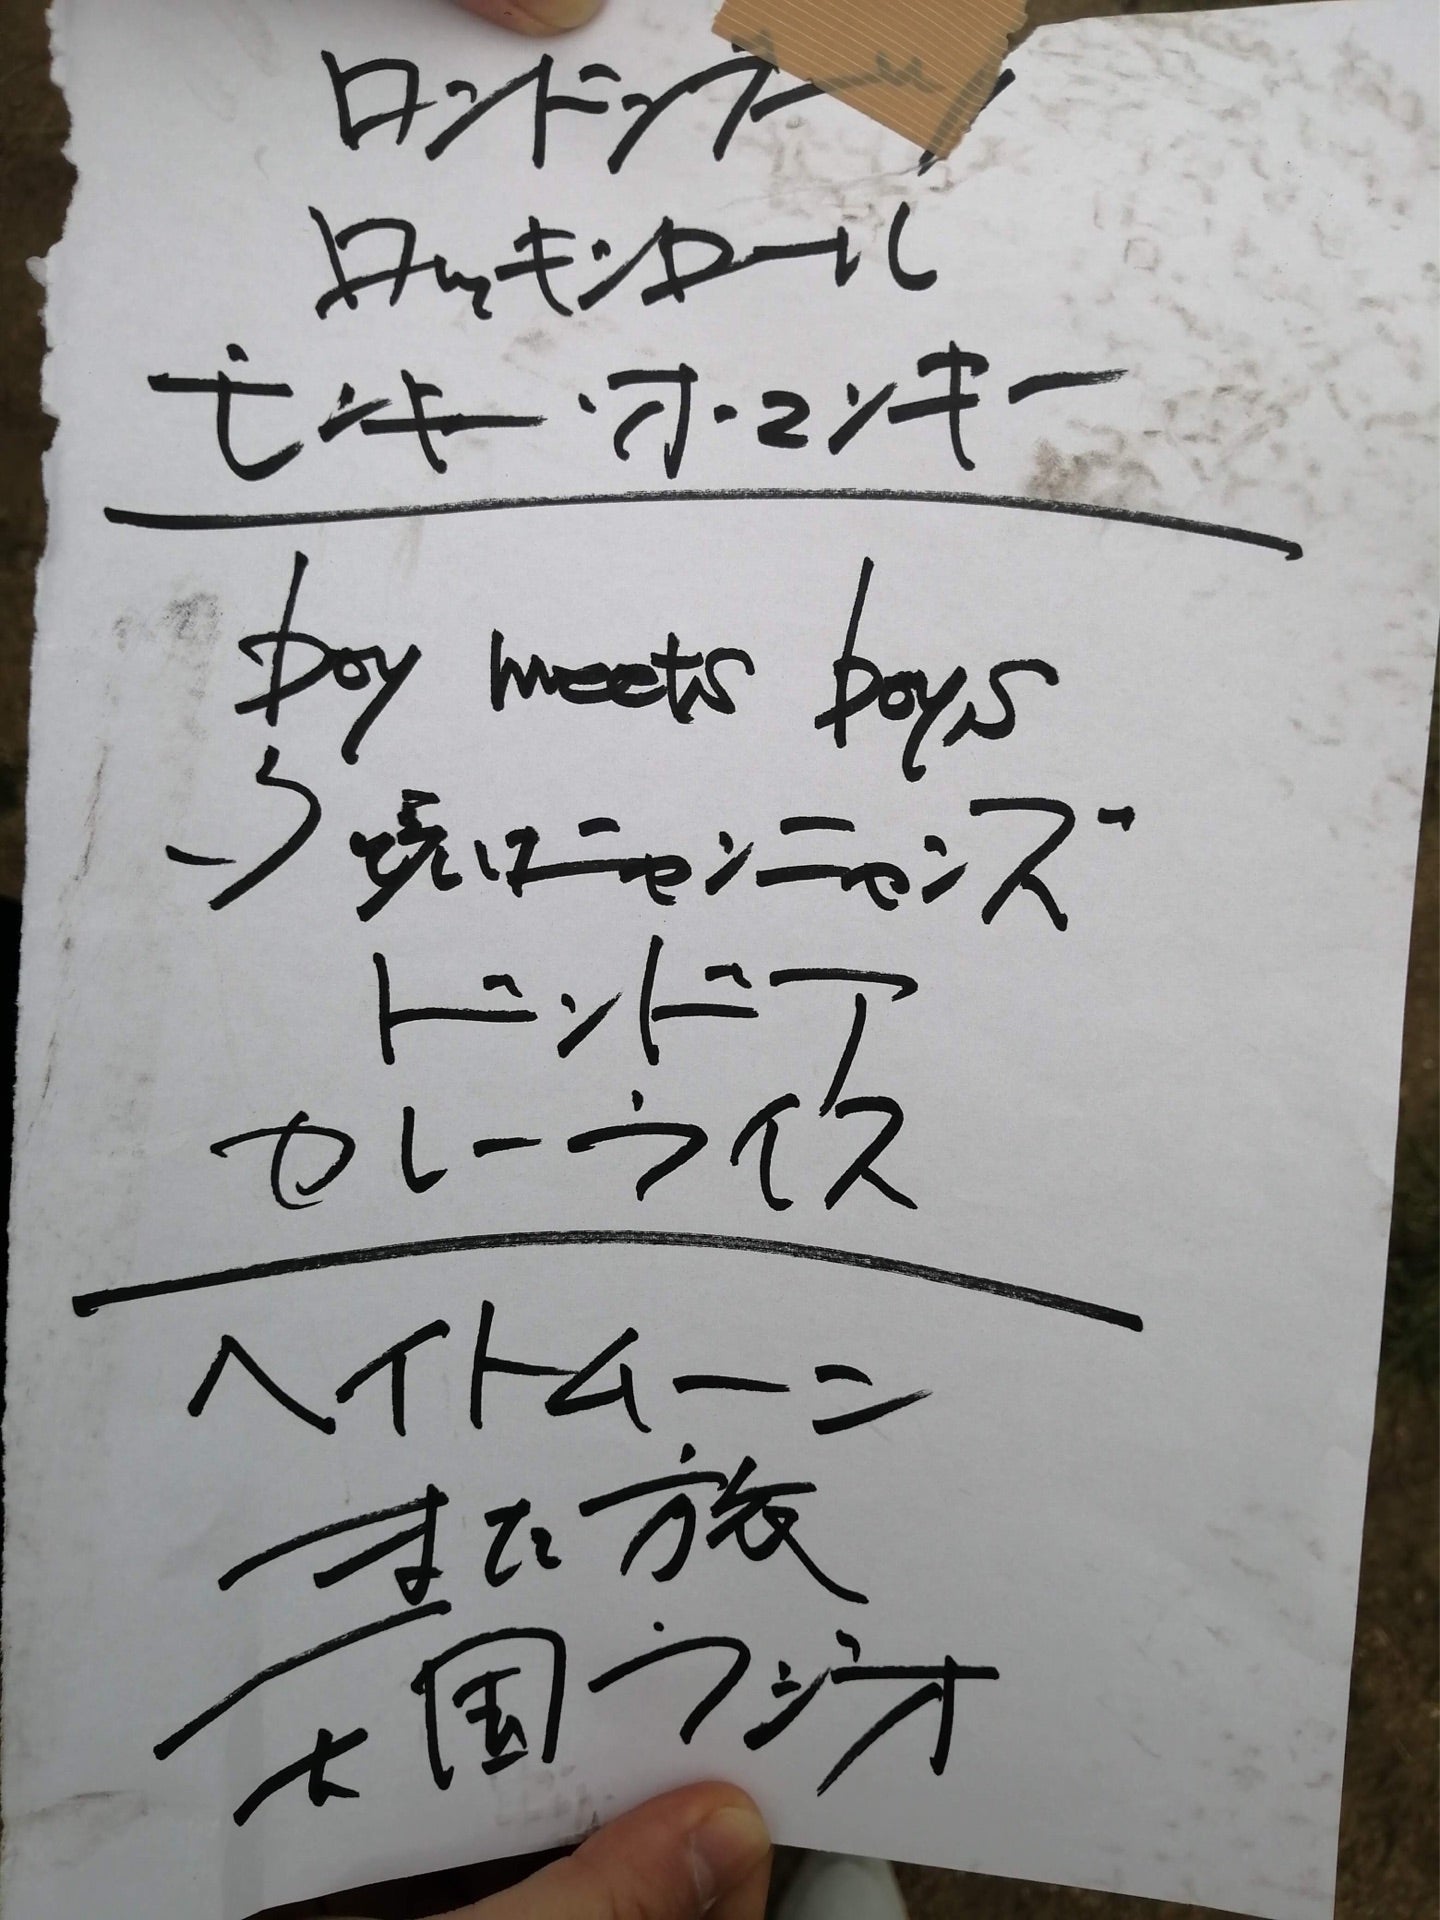 ロンドンブーツ
ロッキンロール
モンキー・オ・マンキー
boy meets boys
夕焼けニャンニャンズ
ドンドア
カレーライス
ヘイトムーン
また旅
天国ラジオ